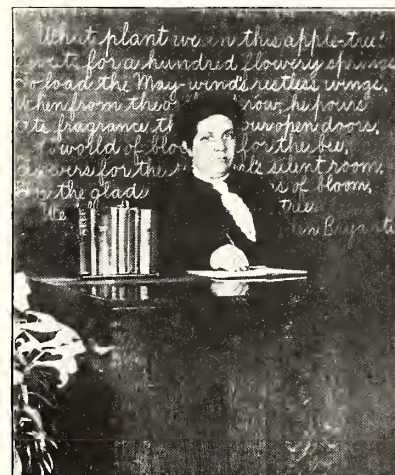 What plant we in this apple-tree?
for a hundred flowery springs
To load the May-wind's restless wings,
When from the o row, he pours
Its fragrance th our open doors,
world of blo for the bee,
Flowers for the l's silent room,
the glad s of bloom,
We tree
en Bryant